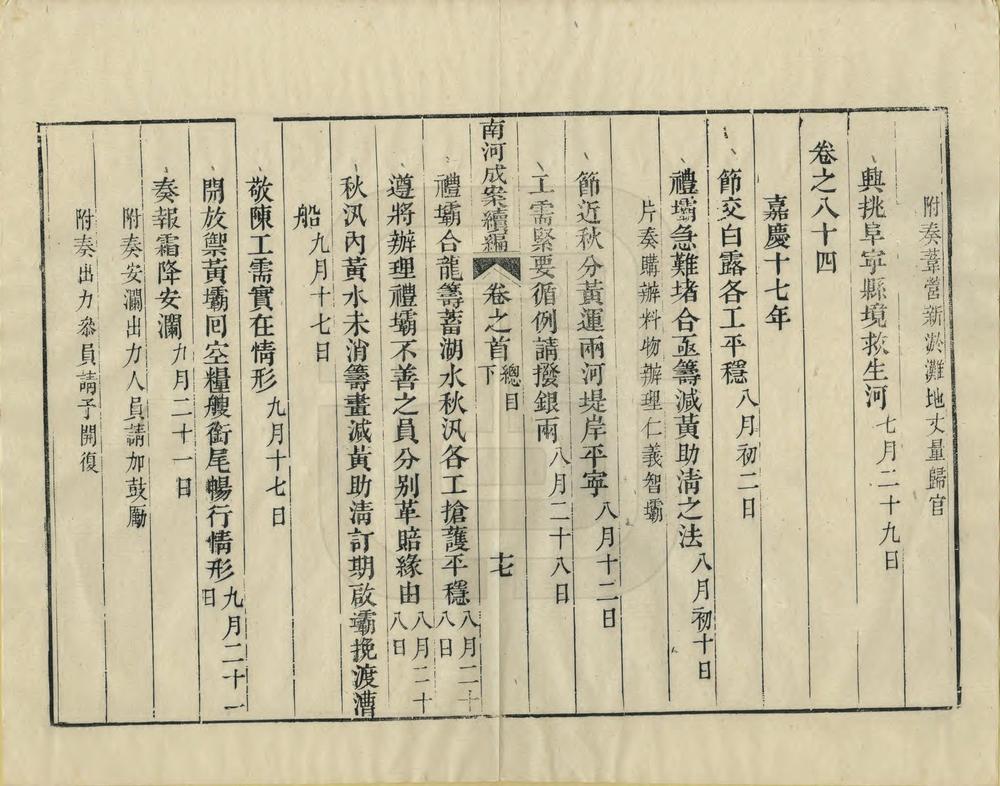 附奏葦營新淤灘地丈量歸官
興挑阜寧縣境救生河 七月二十九日
卷之八十四
嘉慶十七年
節交白露各工平穩 八月初二日
禮壩急難堵合亟籌減黃助清之法 八月初十日
片奏購辦料物辦理仁義智壩
節近秋分黃運兩河堤岸平寧 八月十二日
工需緊要循例請撥銀兩 八月二十八日
南河成案續編 卷之首 總目下 十七
禮壩合龍籌蓄湖水秋汛各工搶護平穩 八月二十八日
遵將辦理禮壩不善之員分別革賠緣由 八月二十八日
秋汛內黃水未消籌畫減黃助清訂期啟壩挽渡漕
船 九月十七日
敬陳工需實在情形 九月十七日
開放禦黃壩回空糧艘銜尾暢行情形 九月二十一日
奏報霜降安瀾 九月二十一日
附奏安瀾出力人員請加鼓勵
附奏出力叅員請予開復